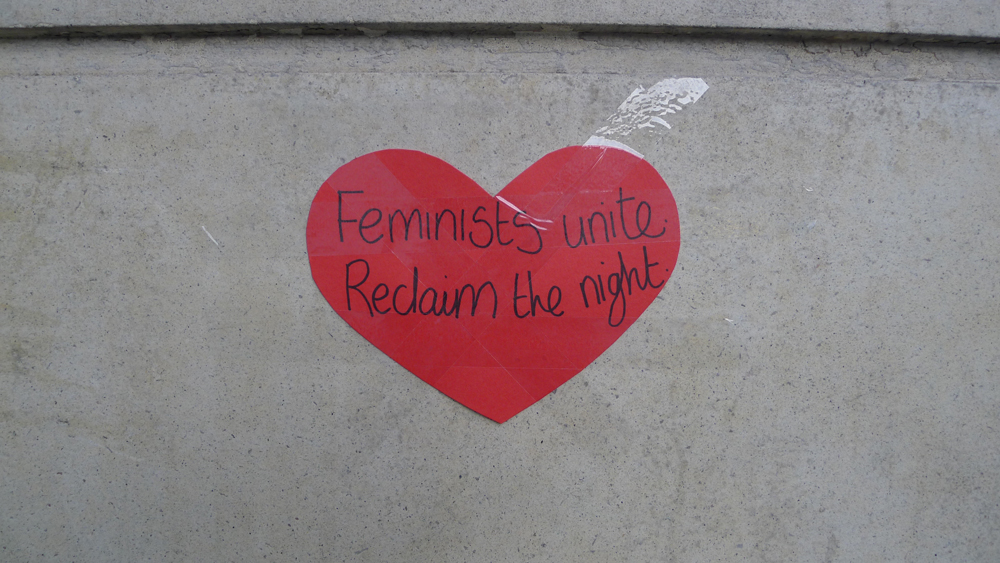 Feminists unite.
Reclaim the night.